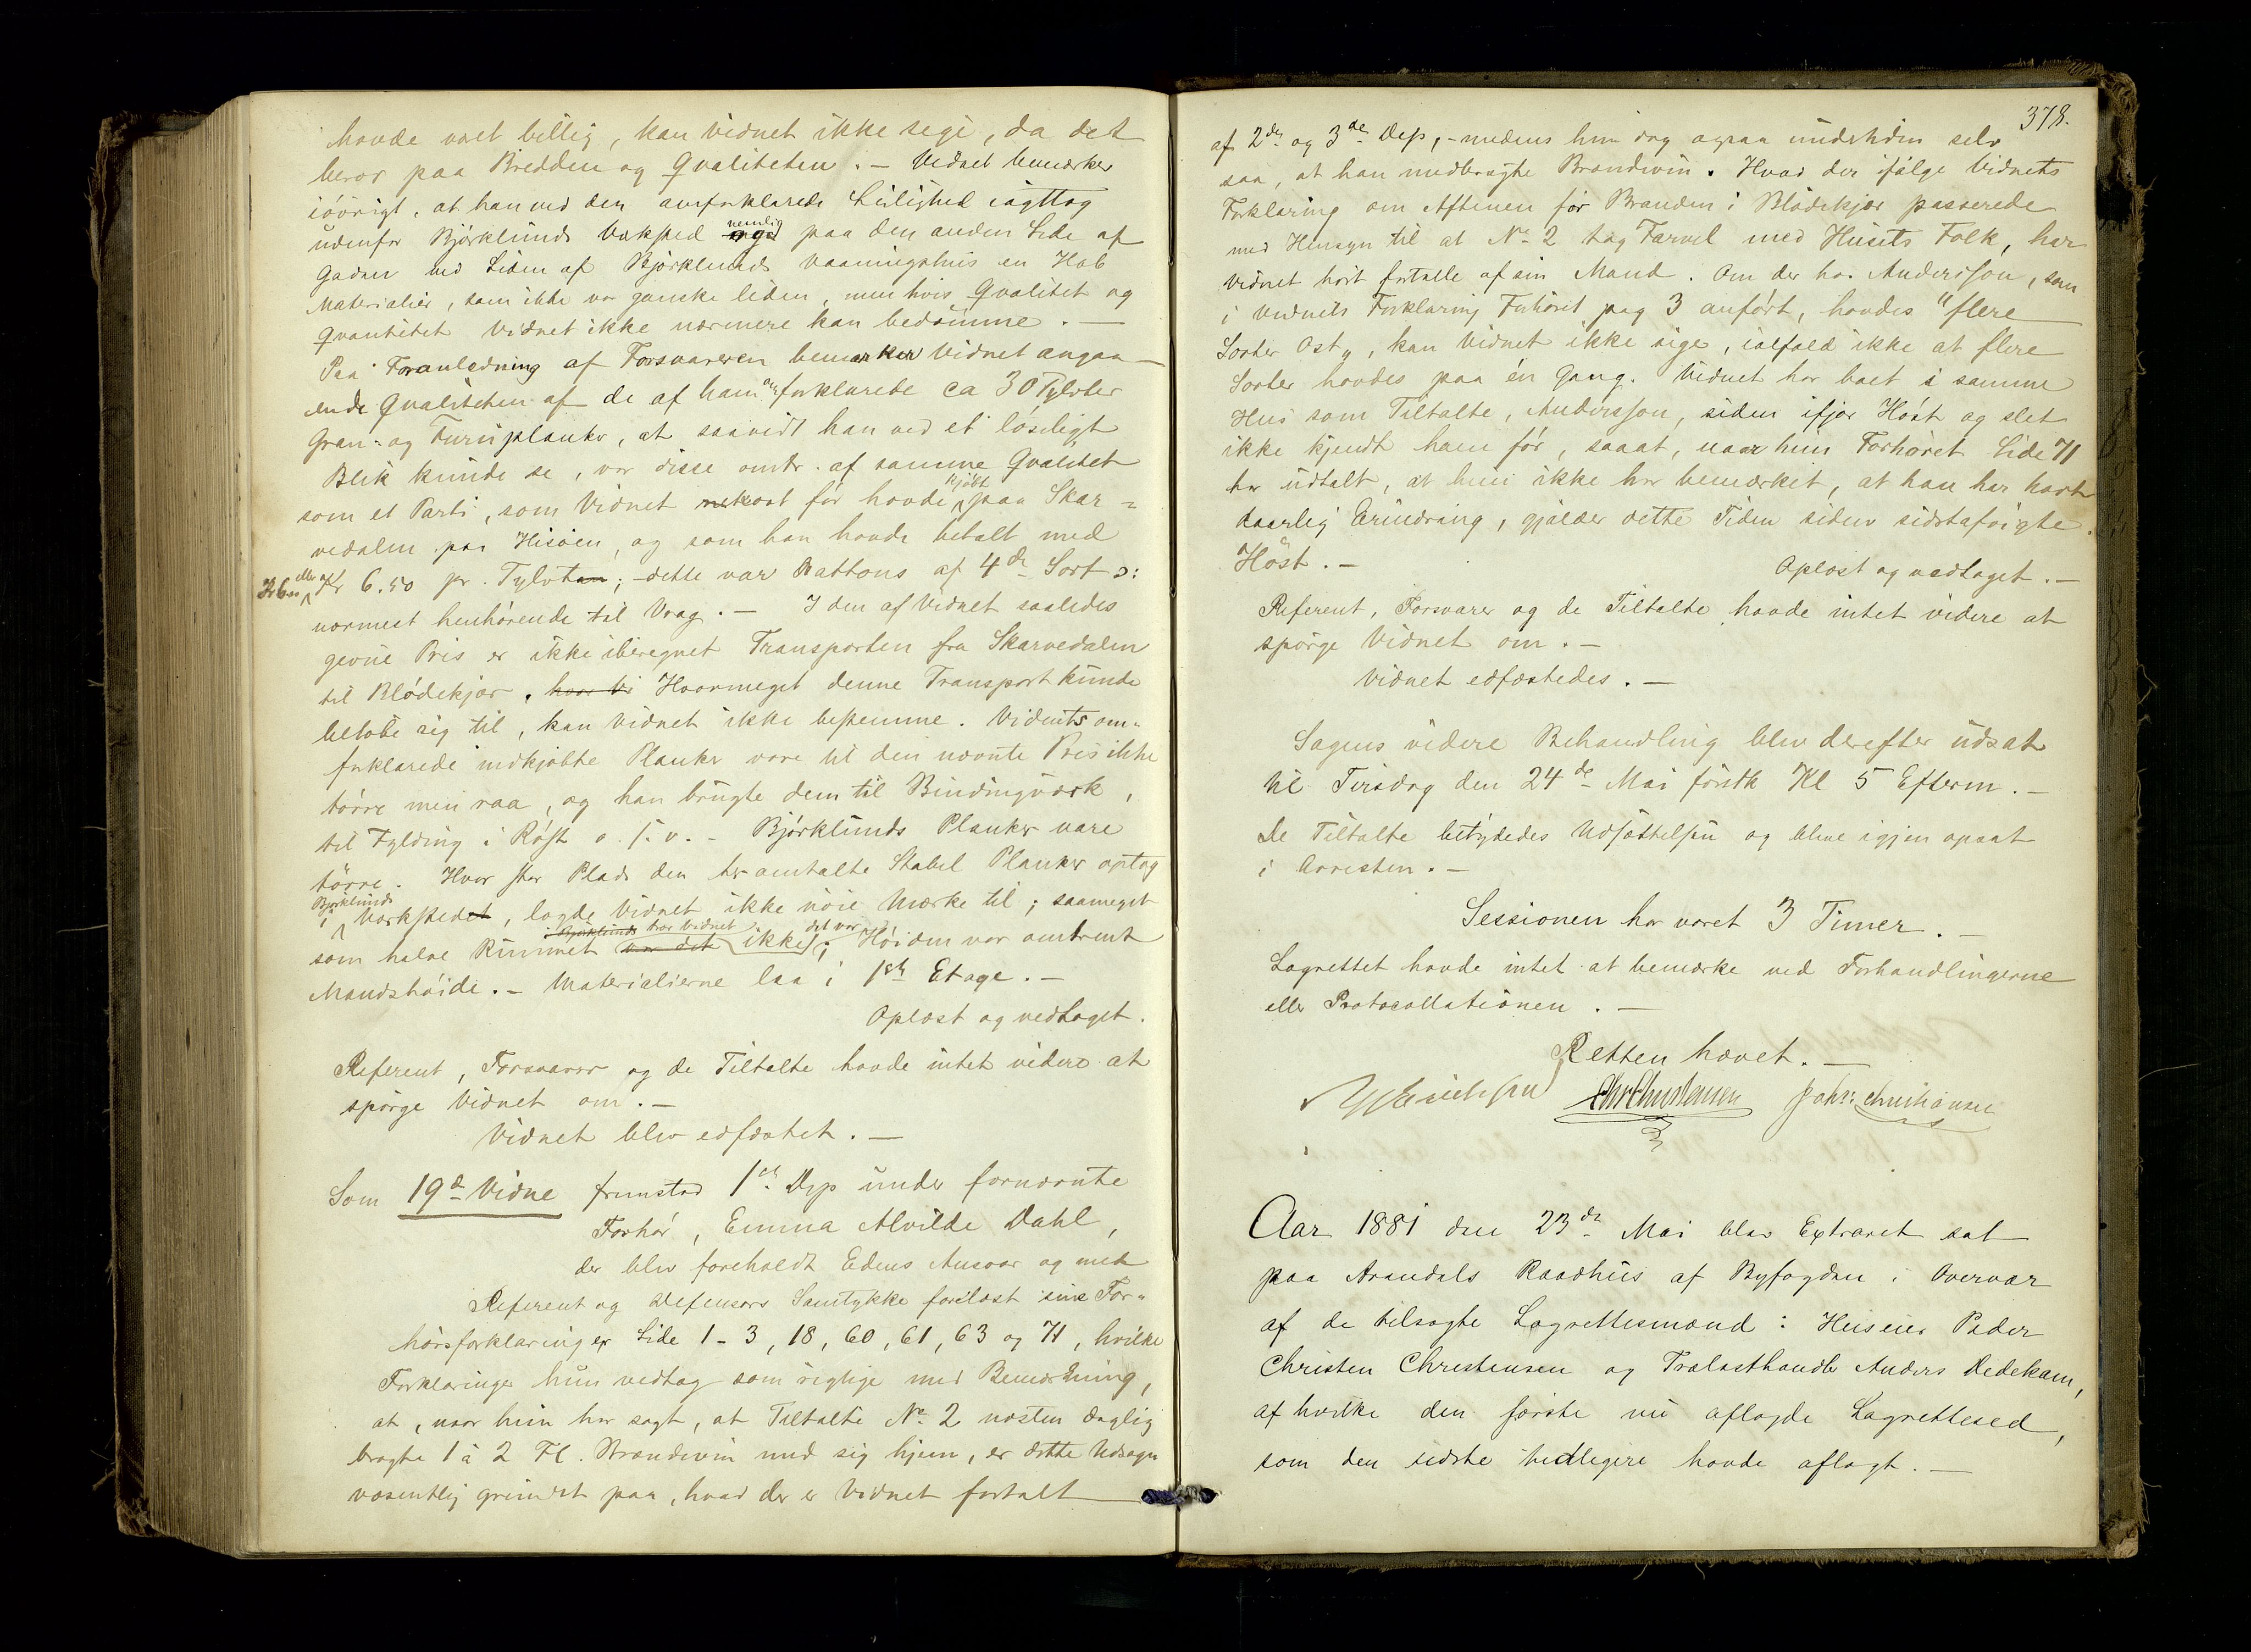 havde været billig, kan Vidnet ikke sige, da det
beror paa Bredden og Qvaliteten. – Vidnet bemærker
iøvrigt, at han ved den omforklarede Leilighed iagttog
udenfor Bjørklunds Værksted nemlig paa den anden Side af
Gaden ved Siden af Bjørklunds Vaaningshus en Hob
Materialier, som ikke var ganske liden, men hvis Qvalitet og
Qvantitet Vidnet ikke nærmere kan bedømme. –
Paa Foranledning af Forsvareren bemærker Vidnet angaa-
ende Qvaliteten af de af ham omforklarede ca 30 Tylvter
Gran- og Furuplanker, at saavidt han ved et løseligt
Blik kunde se, var disse omtr. af samme Qvalitet
som et Parti, som Vidnet før havde kjøbt paa Skar-
vedalen paa Hisøen, og som han havde betalt med
Kr 6 eller Kr 6.50 pr. Tylvt; – dette var Battens af 4de Sort ɔ:
nærmest henhørende til Vrag. – I den af Vidnet saaledes
givne Pris er ikke iberegnet Transporten fra Skarvedalen
til Blødekjær. Hvormeget denne Transport kunde
beløbe sig til, kan Vidnet ikke bestemme. Vidnets om-
forklarede indkjøbte Planker vare til den nævnte Pris ikke
tørre men raa, og han brugte dem til Bindingværk,
til Fylding i Røst o.s.v. – Bjørklunds Planker vare
tørre. Hvor stor Plads den her omtalte Stabel Planker optog
i Bjørklunds Værksted, lagde Vidnet ikke nøie Mærke til; saameget
som halve Rummet tror Vidnet ikke det var; Høiden var omtrent
Mandshøide. – Materialierne laa i 1ste Etage. –
Oplæst og vedtaget.
Referent, Forsvarer og de Tiltalte havde intet videre at
spørge Vidnet om. –
Vidnet blev edfæstet. –
Som 19de Vidne fremstod 1ste Dep under fornævnte
Forhør, Emma Alvilde Dahl,
der blev foreholdt Edens Ansvar og med
Referent og Defensors Samtykke forelæst sine For-
hørsforklaringer Side 1-3, 18, 60, 61, 63 og 71, hvilke
Forklaringer hun vedtog som rigtige med Bemærkning,
at, naar hun har sagt, at Tiltalte No 2 næsten daglig
bragte 1 à 2 Fl. Brændevin med sig hjem, er dette Udsagn
væsentlig grundet paa, hvad der er Vidnet fortalt
378.
af 2den og 3die Dep, – medens hun dog ogsaa undertiden selv
saa, at han medbragte Brændevin. Hvad der ifølge Vidnets
Forklaring om Aftenen før Branden i Blødekjær passerede
med Hensyn til at No 2 tog Farvel med Husets Folk, har
Vidnet hørt fortælle af sin Mand. Om der hos Andersson, som
i Vidnets Forklaring Forhøret pag 3 anført, havdes "flere
Sorter Ost", kan Vidnet ikke sige, ialfald ikke at flere
Sorter havdes paa én Gang. Vidnet har boet i samme
Hus som Tiltalte, Andersson, siden ifjor Høst og slet
ikke kjendt ham før, saaat, naar hun Forhøret Side 71
har udtalt, at hun ikke har bemærket, at han har havt
daarlig Erindring, gjælder dette Tiden siden sidstafvigte
Høst. –
Oplæst og vedtaget. –
Referent, Forsvarer og de Tiltalte havde intet videre at
spørge Vidnet om. –
Vidnet edfæstedes. –
Sagens videre Behandling blev derefter udsat
til Tirsdag den 24de Mai førstk Kl 5 Efterm. –
De Tiltalte betydedes Udsættelsen og bleve igjen opsat
i Arresten. –
Sessionen har varet 3 Timer. –
Lagrettet havde intet at bemærke ved Forhandlingerne
eller Protocollationen. –
Retten hævet. –
Chr Christensen Johs: Christiansen
Aar 1881 den 23de Mai blev Extraret sat
paa Arendals Raadhus af Byfogden i Overvær
af de tilsagte Lagrettesmænd: Huseier Peder
Christen Christensen og Trælasthandler Anders Dedekam,
af hvilke den første nu aflagde Lagretteseed,
som den sidste tidligere havde aflagt. –